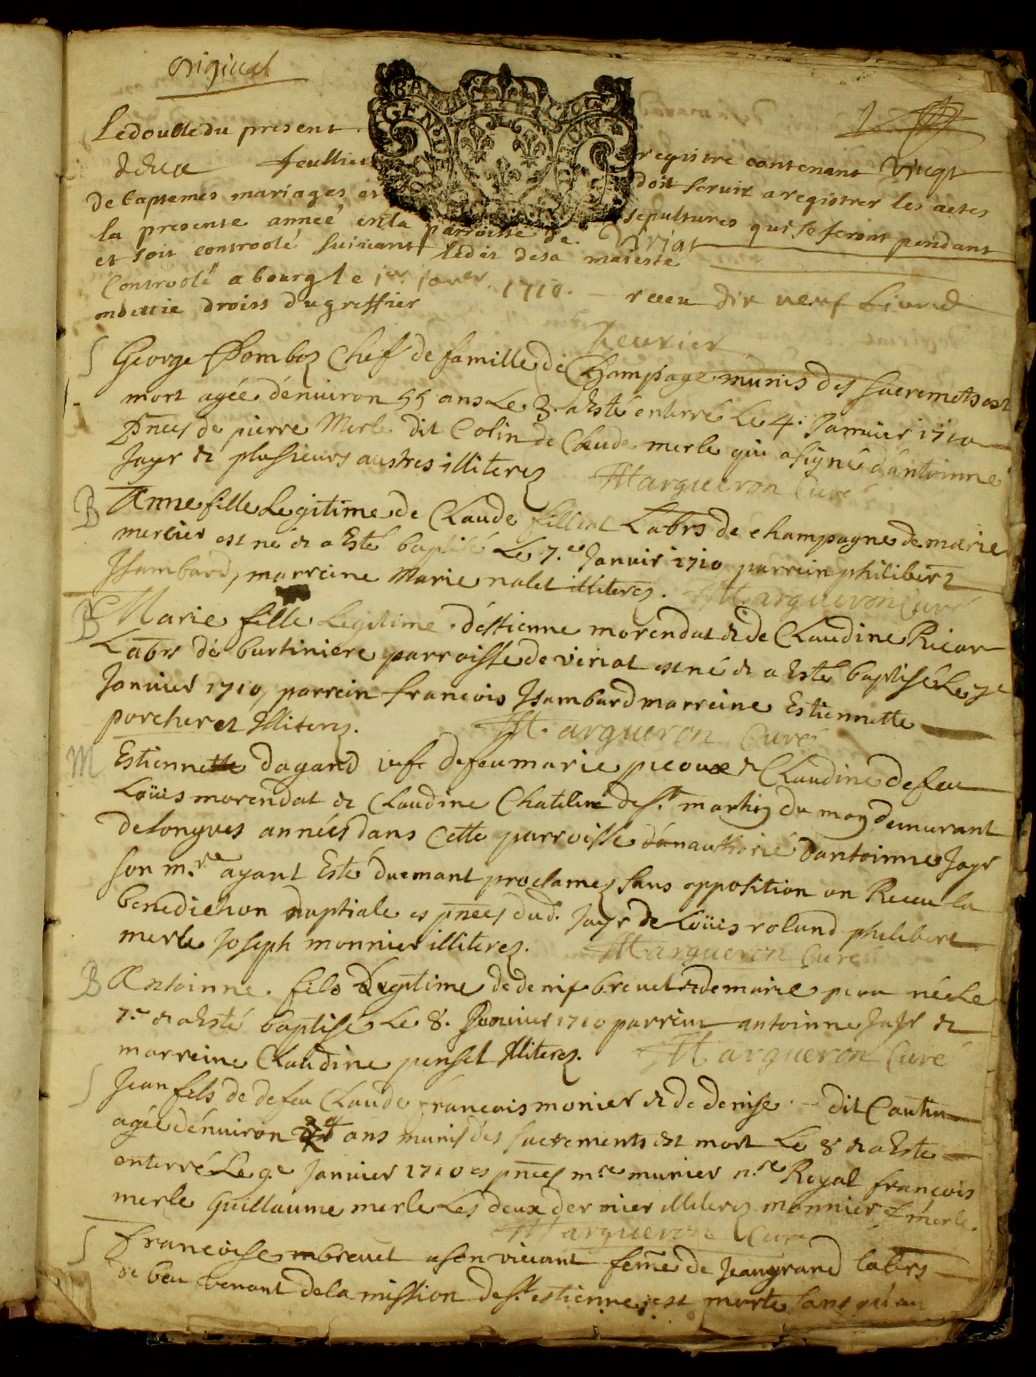 original
1
Le double du present registre contenant vingt
deux feuillets doit servir a registrer les actes
de baptemes mariages et sepultures qui se feront pendant
la presente année en la parroisse de Viriat
et soit controolé suivant ledit de sa majesté
Controolé a bourg le 1er janver 1710. receu dix neuf Livres
droiss du greffier
S George Pomboz Chef de famille de Champage munis des sacremets est
mort agée dénviron 55 ans Le 3. a Esté enterré Le 4. Janvier 1710
pnces de pierre Merle dit Colin de Claude merle qui a signé d'antoinne
Jayr & plusieurs austres illiterez Margueron Curé
B Anne fille Legitime de Claude Labrs de champagne de marie
mercier est né & a Esté baptisé Le 7.e Janvir 1710 parrein philibert
Jsambard, marreine Marie nalet illiterez. Margueron Curé
B Marie fille Legitime d'éstienne morendat & de Claudine Ricar
Labrs de burtiniere parroisse de viriat est né & a Esté baptisé Le 7e
Janvier 1710, parrein francois Jsambard marreine Estiennette
porcheret Illiterez. Margueron Curé
M Estiennette dagand vefe de feu marie picoux & Claudine de feu
Loüis morendat & Claudine Chatelin de st martin du mon demurant
de longues années dans Cette parroisse d'antoinne Jayr
son m.re ayant Esté duemant proclamez sans opposition on Receu la
benediction nuptiale es pnces dud. Jayr de Loüis roland philibert
merle Joseph monnier illiterez. Margueron Curé
B Antoinne. fils Legitime de denis brevet & de marie né Le
7.e & a Esté baptisé Le 8. Janvier 1710 parrein antoinne Jayr &
marreine Claudine penset Illiterez. Margueron Curé
S Jean fils de defeu Claude francois monier & de denise dit Cautin
agée d'énviron ans munis des sacrements est mort Le 8 & a Esté
enterré Le 9.e Janvier 1710 es pnces m.re munier n.re Royal francois
merle Guillaume merle Les deux dernier illiterez monnier f merle.
Margueron Curé
S Francoise brevet a son vivant feme de Jean grand labrs
de beu venant de la mission de st estienne est morte sans